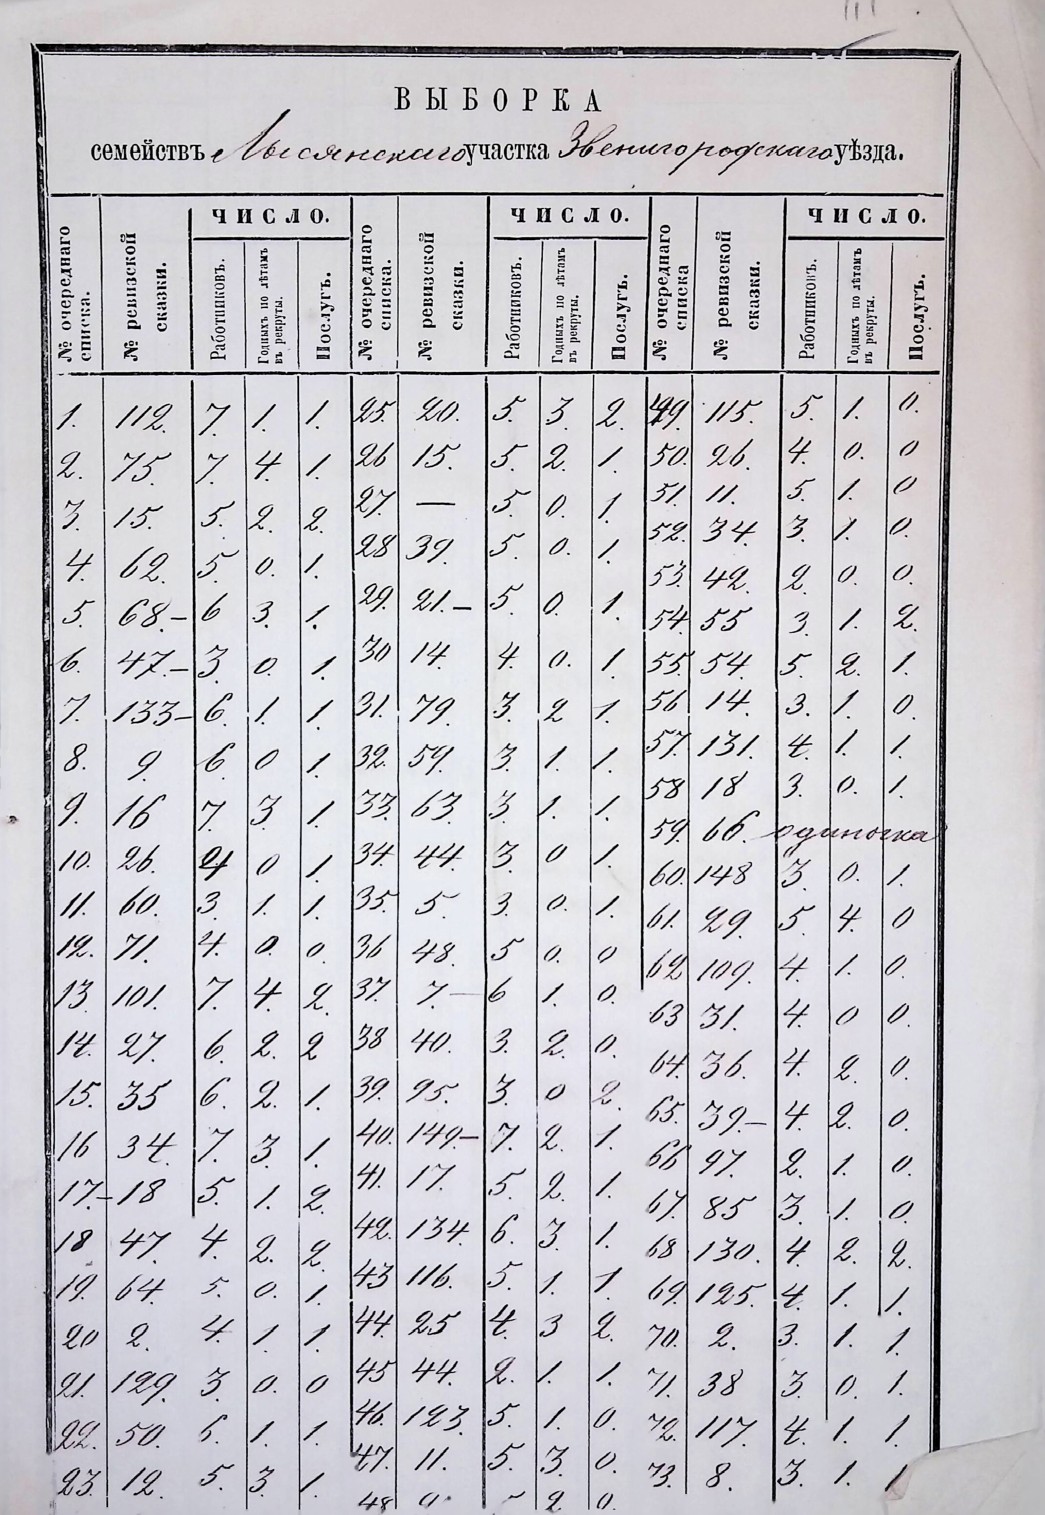 ВЫБОРКА
семействъ Лысянскаго участка Звенигородскаго уѣзда.
ЧИСЛО. ЧИСЛО. ЧИСЛО.
№ очереднаго списка. № ревизской сказки. Работниковъ. Годныхъ по лѣтамъ въ рекруты. Послугъ. № очереднаго списка. № ревизской сказки. Работниковъ. Годныхъ по лѣтамъ въ рекруты. Послугъ. № очереднаго списка № ревизской сказки. Работниковъ. Годныхъ по лѣтамъ въ рекруты. Послугъ.
1. 112. 7. 1. 1. 25. 20. 5. 3. 2. 49. 115. 5. 1. 0.
2. 75. 7. 4. 1. 26 15. 5. 2. 1. 50. 26. 4. 0. 0
3. 15. 5. 2. 2. 27. — 5. 0. 1. 51. 11. 5. 1. 0
4. 62. 5. 0. 1. 28 39. 5. 0. 1. 52. 34. 3. 1. 0.
5. 68.– 6 3. 1. 29. 21.– 5. 0. 1. 53. 42. 2. 0. 0.
6. 47.– 3. 0. 1. 30 14. 4. 0. 1. 54. 55 3. 1. 2.
7. 133– 6. 1. 1. 31. 79. 3. 2 1. 55. 54. 5. 2. 1.
8. 9. 6. 0 1. 32. 59. 3. 1. 1. 56 14. 3. 1. 0.
9. 16 7. 3. 1. 33. 63. 3 1. 1. 57. 131. 4. 1. 1.
10. 26. 4 0 1. 34 44. 3. 0 1. 58 18 3. 0. 1.
11. 60. 3. 1. 1. 35. 5. 3. 0. 1. 59. 66. одиночка
12. 71. 4. 0. 0. 36 48. 5 0. 0 60. 148 3. 0. 1.
13. 101. 7. 4. 2. 37. 7.– 6 1. 0. 61. 29. 5. 4. 0
14. 27. 6. 2. 2 38 40. 3. 2. 0. 62 109. 4. 1. 0.
15. 35 6. 2. 1. 39. 95. 3. 0 2. 63 31. 4. 0 0.
16 34. 7. 3. 1. 40. 149– 7. 2. 1. 64. 36. 4. 2. 0.
17.– 18 5. 1. 2. 41. 17. 5. 2. 1. 65. 39.– 4. 2. 0.
18 47. 4. 2. 2. 42. 134. 6. 3. 1. 66 97. 2. 1. 0.
19. 64. 5. 0. 1. 43 116. 5. 1. 1. 67. 85 3. 1. 0.
20 2. 4. 1. 1. 44. 25 4. 3 2. 68 130. 4. 2. 2.
21. 129. 3. 0. 0 45 44. 2. 1. 1. 69. 125. 4. 1. 1.
22. 50. 1. 1. 46. 123. 5. 1. 0. 70. 2. 3. 1. 1.
23. 12. 5. 3. 1. 47. 11. 5. 3. 0. 71. 38 3. 0. 1.
48 2. 0. 72. 117. 4. 1. 1.
73. 8. 3. 1. 1